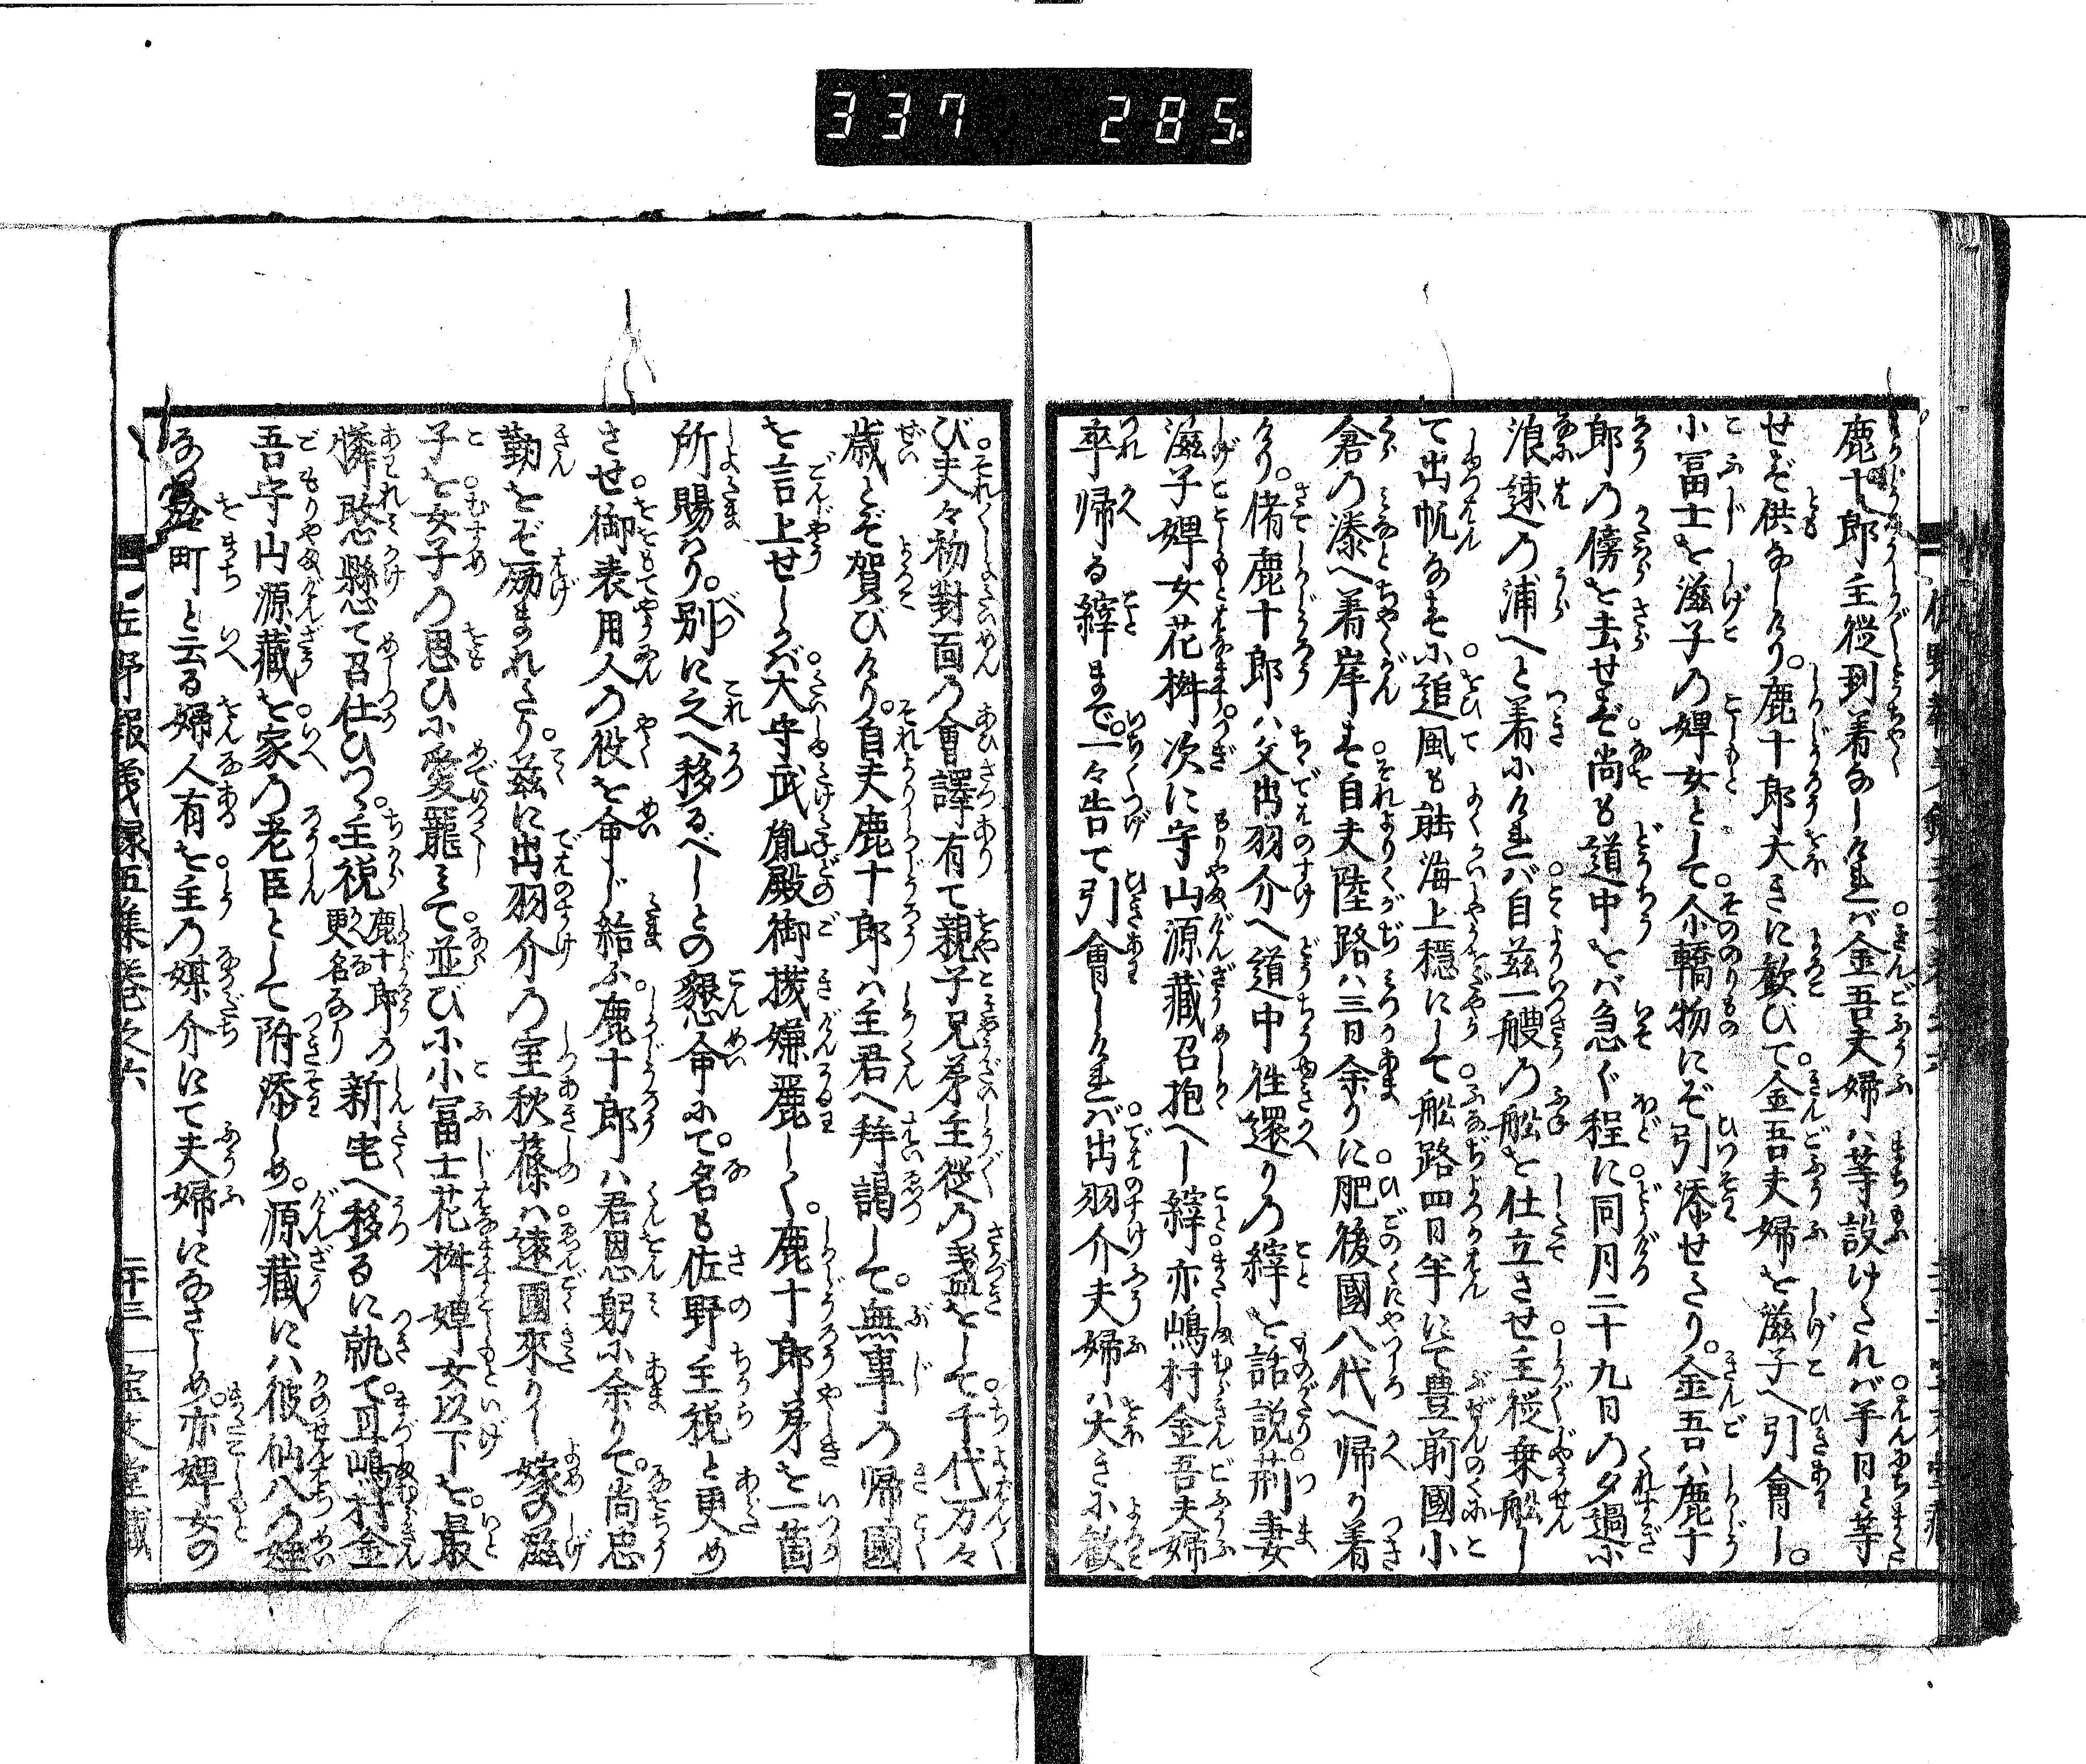 337 285
鹿十郎主従到着なしければ金吾夫婦ハ等設けされバ手日と等
せぞ供なしけり。鹿十郎大きに歓びて。金吾夫婦を滋子へ引會し。
小冨士を滋子の婢女として介轎物にぞ引添せたり。金吾ハ鹿十
郎の傍を去せぞ尚も道中をバ急ぐ程に同月二十九日の夕過に
浪速の浦へと着にければ自茲一艘の舩を仕立させ主従乗舩し
て出帆なすに追風も能海上穏にして舩路四日半にて豊前國小
倉の湊へ着岸す自夫陸路ハ三日余りに肥後國八代へ帰り着
けり。偖鹿十郎ハ父出羽介へ道中徃還りの縡を話説荊妻
滋子婢女花桝次に守山源藏召抱へし縡亦嶋村金吾夫婦
卒帰る縡まで。一々告て引會しければ出羽介夫婦ハ大きに歓
び夫々初對面の會譯有て親子兄弟主従の盞をして千代万々
歳とぞ賀びけり。自夫鹿十郎ハ主君へ拜謁して。無事の帰國
を言上せしかバ大守武胤殿御機嫌麗しく。鹿十郎弟を一箇
所賜はり。別に之へ移るべしとの懇命にて。名も佐野主税と更め
させ御表用人の役を命じ給ふ。鹿十郎ハ君恩躬に余りて。尚忠
勤をぞ励まれたり。茲に出羽介の室秋篠ハ遠國來りし嫁の滋
子を女子の思ひに愛寵みて並びに小冨士花桝婢女以下を。最
憐愍懸て召仕ひつゝ主税鹿十郎の更名なり新宅へ移るに執て。且嶋村金
吾守山源藏を家の老臣として附添しめ。源藏にハ彼仙八の姪
町と云る婦人有を主の媒介にて夫婦になさしめ。亦婢女の
佐野報義録五集巻之六 二十三 宝文堂藏